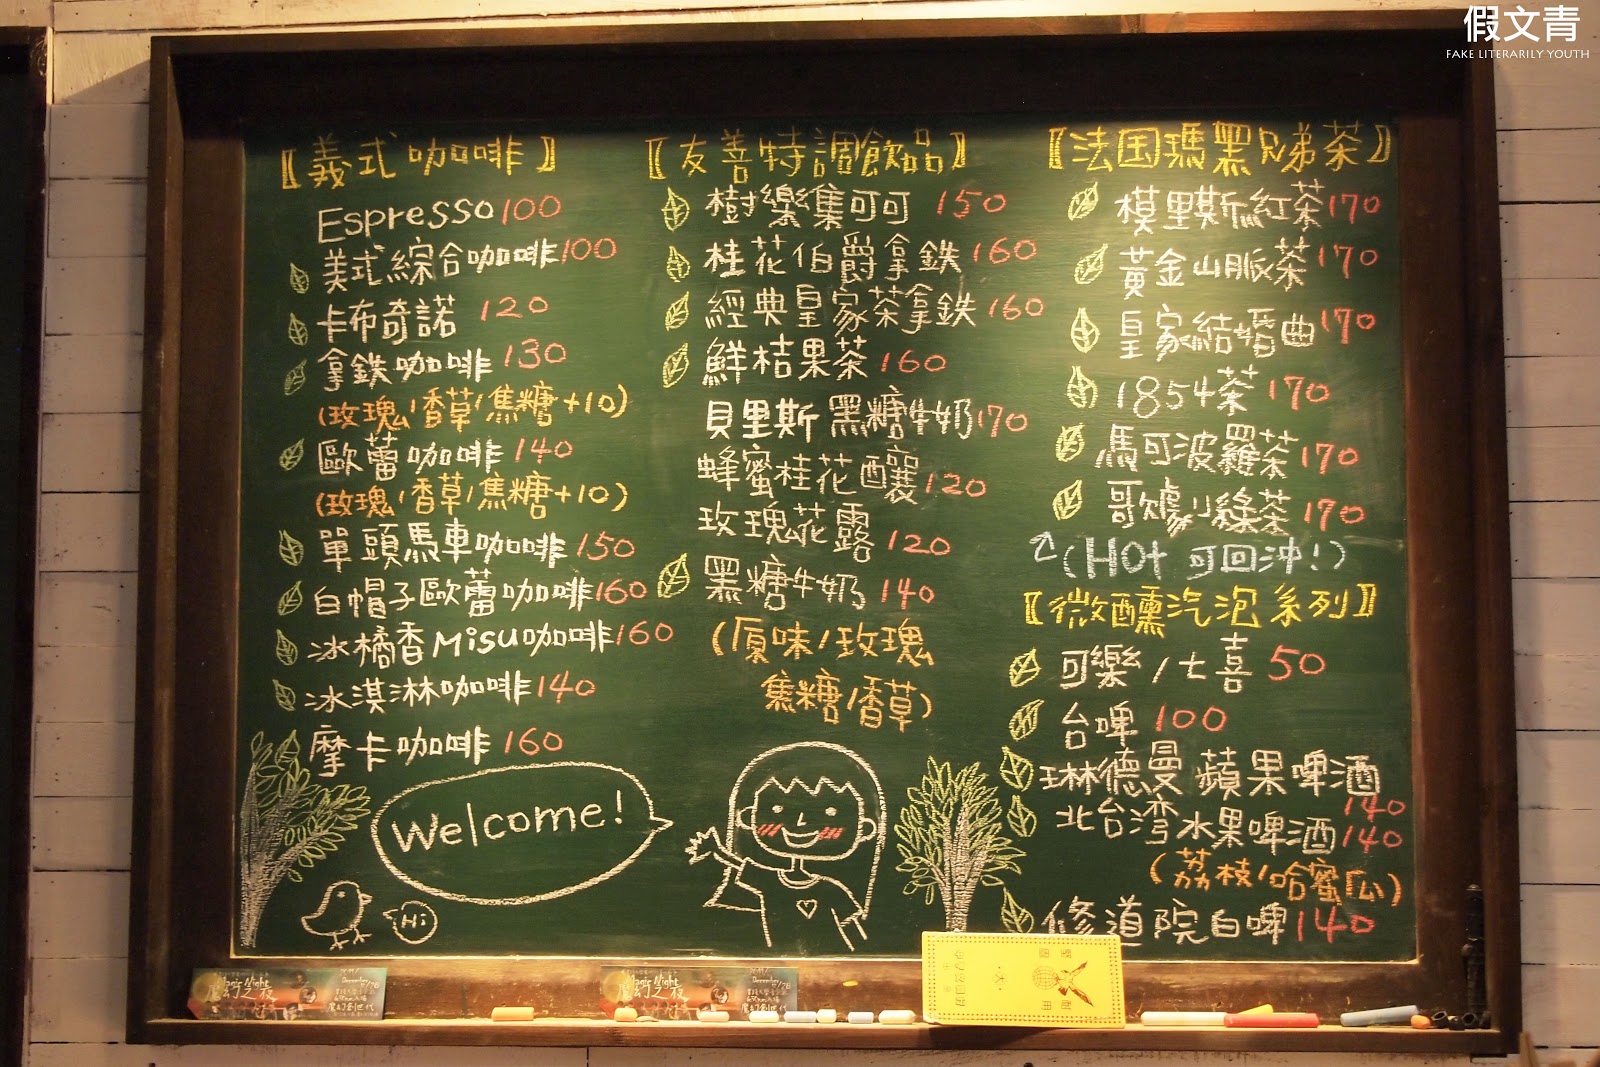 假文青
FAKE LITERARILY YOUTH
〖義式咖啡〗
Espresso 100
美式綜合咖啡 100
卡布奇諾 120
拿鐵咖啡 130
(玫瑰/香草/焦糖+10)
歐蕾咖啡 140
(玫瑰/香草/焦糖+10)
單頭馬車咖啡 150
白帽子歐蕾咖啡 160
冰橘香Misu咖啡 160
冰淇淋咖啡 140
摩卡咖啡 160
Welcome!
Hi
〖友善特調飲品〗
樹樂集可可 150
桂花伯爵拿鐵 160
經典皇家茶拿鐵 160
鮮桔果茶 160
貝里斯黑糖牛奶 170
蜂蜜桂花釀 120
玫瑰花露 120
黑糖牛奶 140
(原味/玫瑰
焦糖/香草)
〖法国瑪黑兄弟茶〗
模里斯紅茶 170
黃金山脈茶 170
皇家結婚曲 170
1854茶 170
馬可波羅茶 170
哥爾綠茶 170
(Hot 可回沖!)
〖微醺汽泡系列〗
可樂/七喜 50
台啤 100
琳德曼蘋果啤酒
140
北台湾水果啤酒 140
(荔枝/哈蜜瓜)
修道院白啤 140